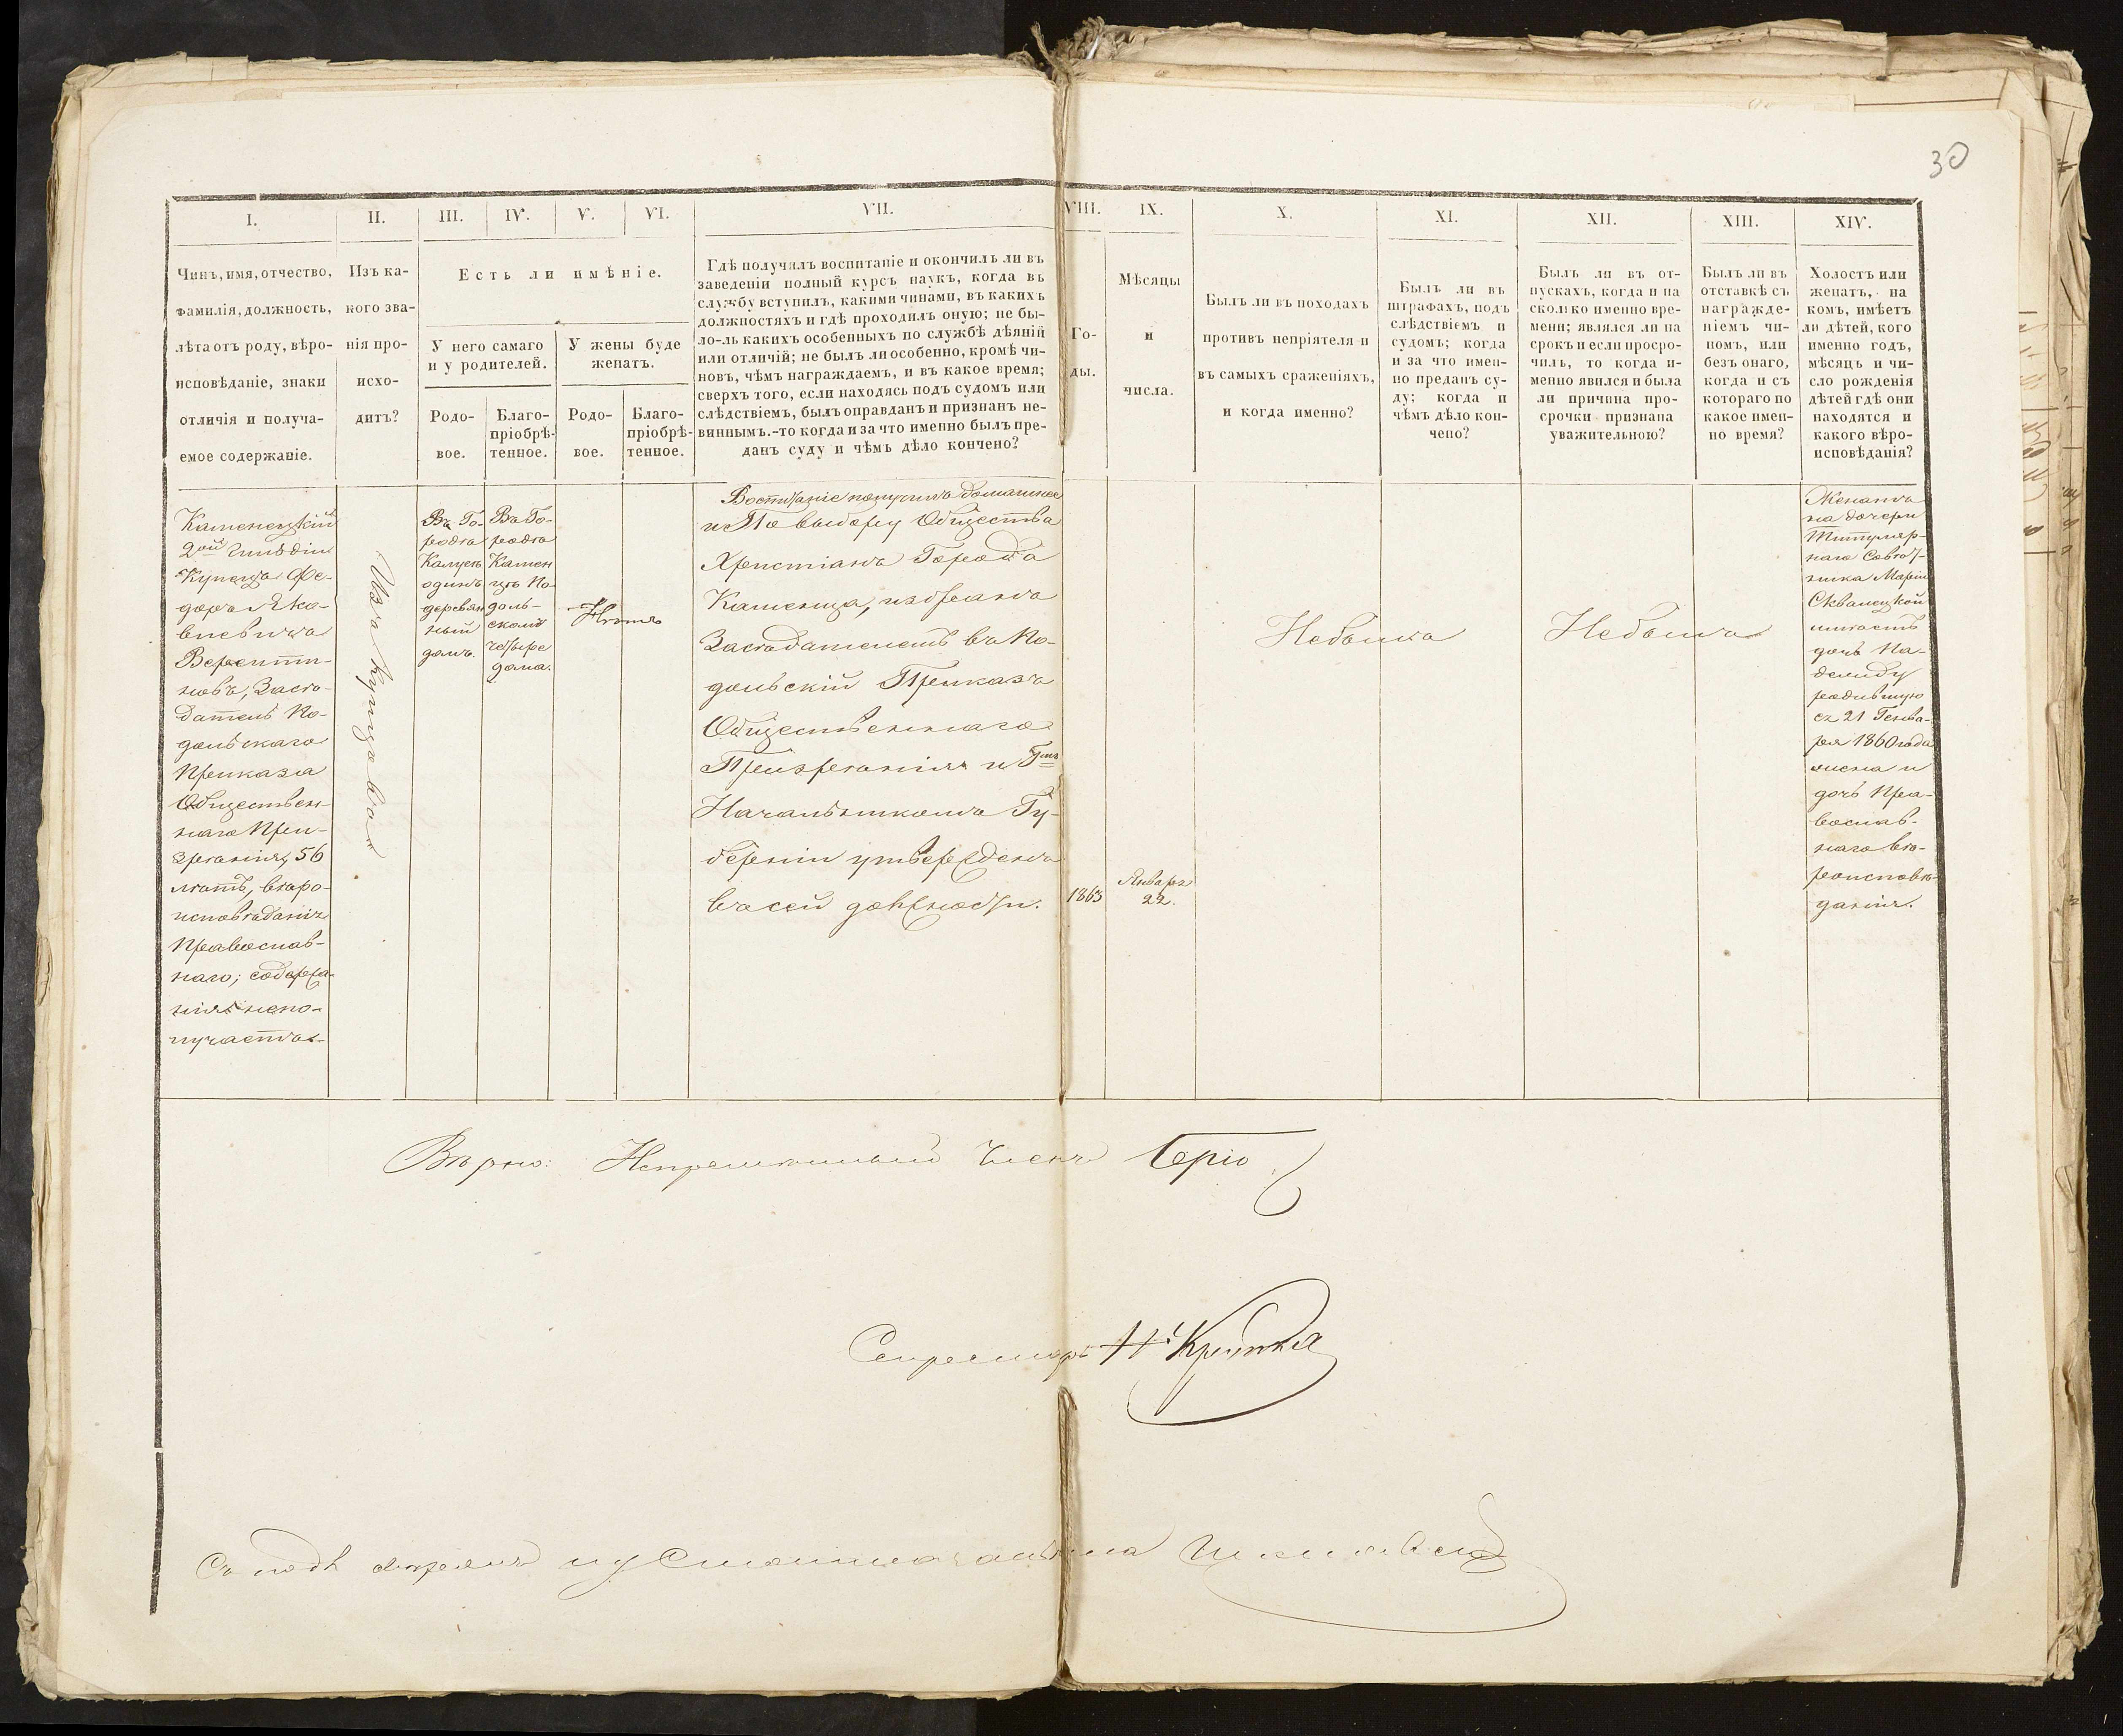 30
I.
II.
III.
IV.
V.
VI.
VII.
VIII.
IX.
X.
XI.
XII.
XIII.
XIV.
Чинъ, имя, отчество,
фамилія, должность,
лѣта отъ роду, вѣро-
исповѣданіе, знаки
отличія и получа-
емое содержаніе.
Изъ ка-
кого зва-
нія про-
исхо-
дитъ?
Есть ли имѣніе.
У него самаго
и у родителей.
У жены буде
женатъ.
Родо-
вое.
Благо-
пріобрѣ-
тенное.
Родо-
вое.
Благо-
пріобрѣ-
тенное.
Гдѣ получилъ воспитаніе и окончилъ ли въ
заведеніи полный курсъ наукъ, когда въ
службу вступилъ, какими чинами, въ какихъ
должностяхъ и гдѣ проходилъ оную; не бы-
ло-ль какихъ особенныхъ по службѣ дѣяній
или отличій; не былъ ли особенно, кромѣ чи-
новъ, чѣмъ награждаемъ, и въ какое время;
сверхъ того, если находясь подъ судомъ или
слѣдствіемъ, былъ оправданъ и признанъ не-
виннымъ.-то когда и за что именно былъ пре-
данъ суду и чѣмъ дѣло кончено?
Го-
ды.
Мѣсяцы
и
числа.
Былъ ли въ походахъ
противъ непріятеля и
въ самыхъ сраженіяхъ,
и когда именно?
Былъ ли въ
штрафахъ, подъ
слѣдствіемъ и
судомъ; когда
и за что имен-
но преданъ су-
ду; когда и
чѣмъ дѣло кон-
чено?
Былъ ли въ от-
пускахъ, когда и на
сколько именно вре-
мени; являлся ли на
срокъ и если просро-
чилъ, то когда и-
менно явился и была
ли причина про-
срочки признана
уважительною?
Былъ ли въ
отставкѣ съ
награжде-
ніемъ чи-
номъ, или
безъ онаго,
когда и съ
котораго по
какое имен-
но время?
Холостъ или
женатъ, на
комъ, имѣетъ
ли дѣтей, кого
именно годъ,
мѣсяцъ и чи-
сло рожденія
дѣтей гдѣ они
находятся и
какого вѣро-
исповѣданія?
Каменецкій
2ой Гильдіи
Купецъ Фе-
доръ Яко-
влевичъ
Заcѣ-
датель По-
дольскаго
Приказа
Обществен-
наго При-
зрѣнія, 56
лѣтъ, вѣро-
исповѣданія
Православ-
наго; содержа-
нія непо-
лучаетъ.
Изъ Купцовъ
Въ Го-
родѣ
Калугѣ
одинъ
деревян
ный
домъ.
Въ Го-
родѣ
Камен
цѣ По-
доль-
скомъ
четыре
дома.
Нѣтъ
Воспитаніе получилъ домашнее
и По выбору Общества
Христіанъ Города
Каменца, избранъ
Засѣдателемъ въ По-
дольскій Приказъ
Общественнаго
Призрѣнія и Гмъ
Начальникомъ Гу-
берніи утвержденъ
въ сей должности.
1863
Января
22.
Небылъ
Небылъ
Женатъ
на дочери
Титуляр-
наго Совѣт-
ника Маріи
Скваецкой
имѣетъ
дочь На-
дежду
родившую
ся 21 Генва-
ря 1860 года
жена и
дочь Пра-
вослав-
наго вѣ-
роисповѣ-
данія.
Вѣрно: Непремѣнный Членъ
Секретарь